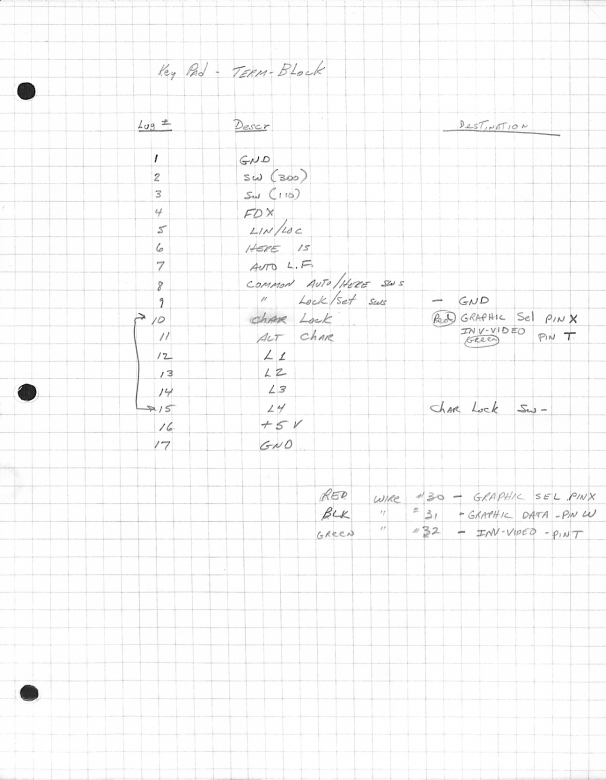 Key Pad - TERM-Block
Lug # Descr DESTINATION
1 GND
2 SW (300)
3 SW (110)
4 FDX
5 LIN/LOC
6 HERE IS
7 AUTO L.F.
8 COMMON AUTO/HERE SWS
9 " Lock/Set SWS — GND
10 CHAR Lock Red GRAPHIC Sel PIN X
11 ALT CHAR INV-VIDEO GREEN PIN T
12 L1
13 L2
14 L3
15 L4 CHAR Lock SW-
16 +5V
17 GND
RED WIRE #30 — GRAPHIC SEL PINX
BLK " #31 - GRAPHIC DATA - PIN W
GREEN " #32 - INV-VIDEO - PIN T